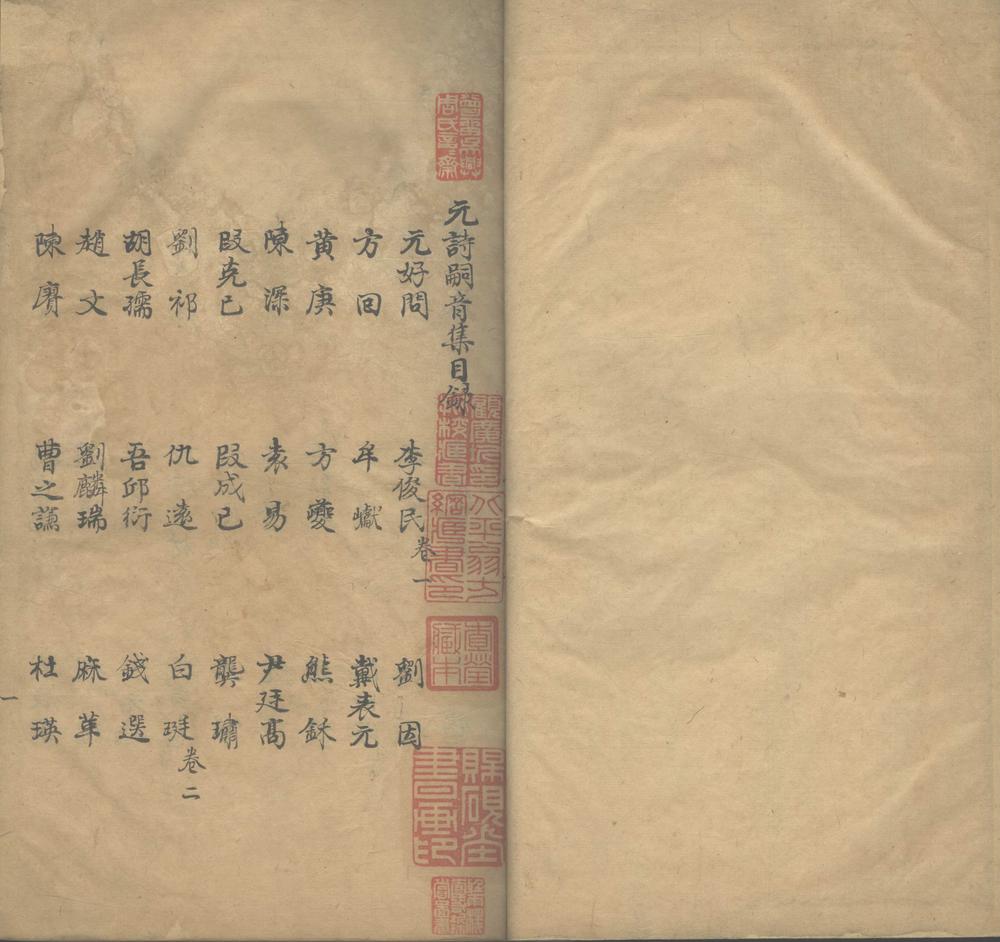 元詩嗣音集目錄
元好問 李俊民 劉因
卷一
方回 牟巘 戴表元
黃庚 方夔 熊鉌
陳深 袁易 尹廷高
段克己 段成己 龔璛
劉祁 仇遠 白珽
卷二
胡長孺 吾邱衍 錢選
趙文 劉麟瑞 麻革
陳賡 曹之謙 杜瑛
一
賜硯堂書畫印